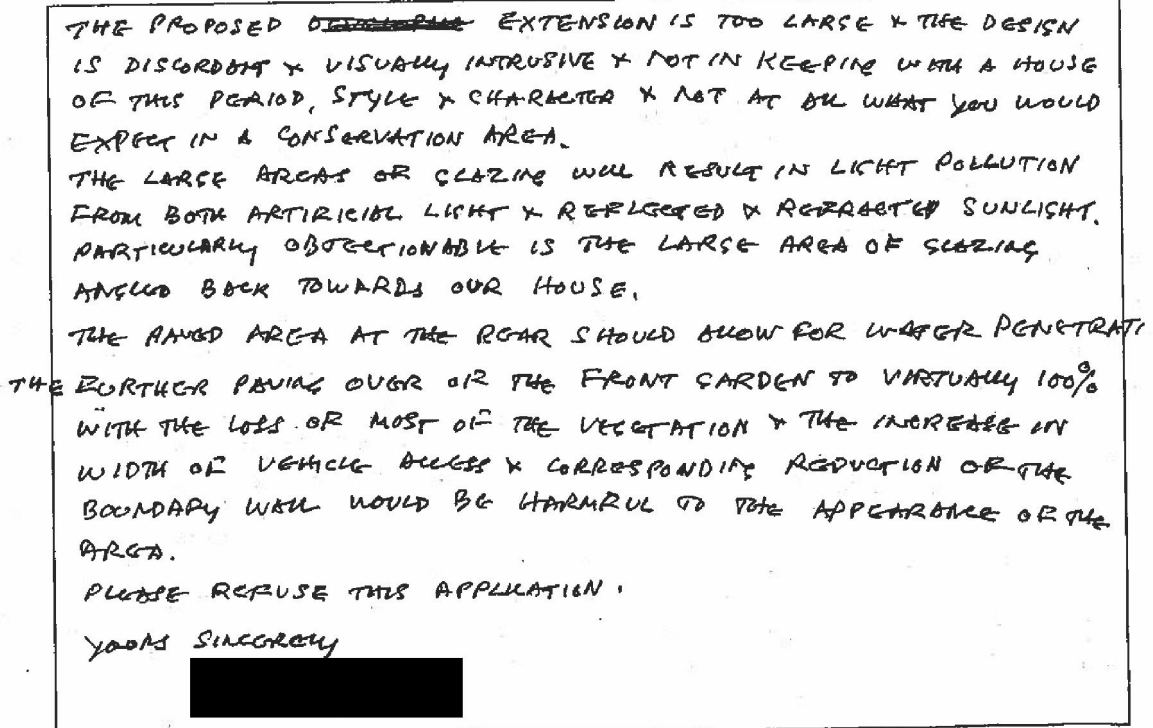 THE PROPOSED EXTENSION IS TOO LARGE & THE DESIGN
IS DISCORDANT & VISUALLY INTRUSIVE & NOT IN KEEPING WITH A HOUSE
OF THIS PERIOD, STYLE & CHARACTER & NOT AT ALL WHAT YOU WOULD
EXPECT IN A CONSERVATION AREA.
THE LARGE AREAS OF GLAZING WILL RESULT IN LIGHT POLLUTION
FROM BOTH ARTIFICIAL LIGHT & REFLECTED & REFRACTED SUNLIGHT.
PARTICULARLY OBJECTIONABLE IS THE LARGE AREA OF GLAZING
ANGLED BACK TOWARDS OUR HOUSE.
THE PAVED AREA AT THE REAR SHOULD ALLOW FOR WATER PENETRATI
THE FURTHER PAVING OVER OF THE FRONT GARDEN TO VIRTUALLY 100%
WITH THE LOSS OF MOST OF THE VEGETATION & THE INCREASE IN
WIDTH OF VEHICLE ACCESS & CORRESPONDING REDUCTION OF THE
BOUNDARY WALL WOULD BE HARMFUL TO THE APPEARANCE OF THE
AREA.
PLEASE REFUSE THIS APPLICATION.
YOURS SINCERELY